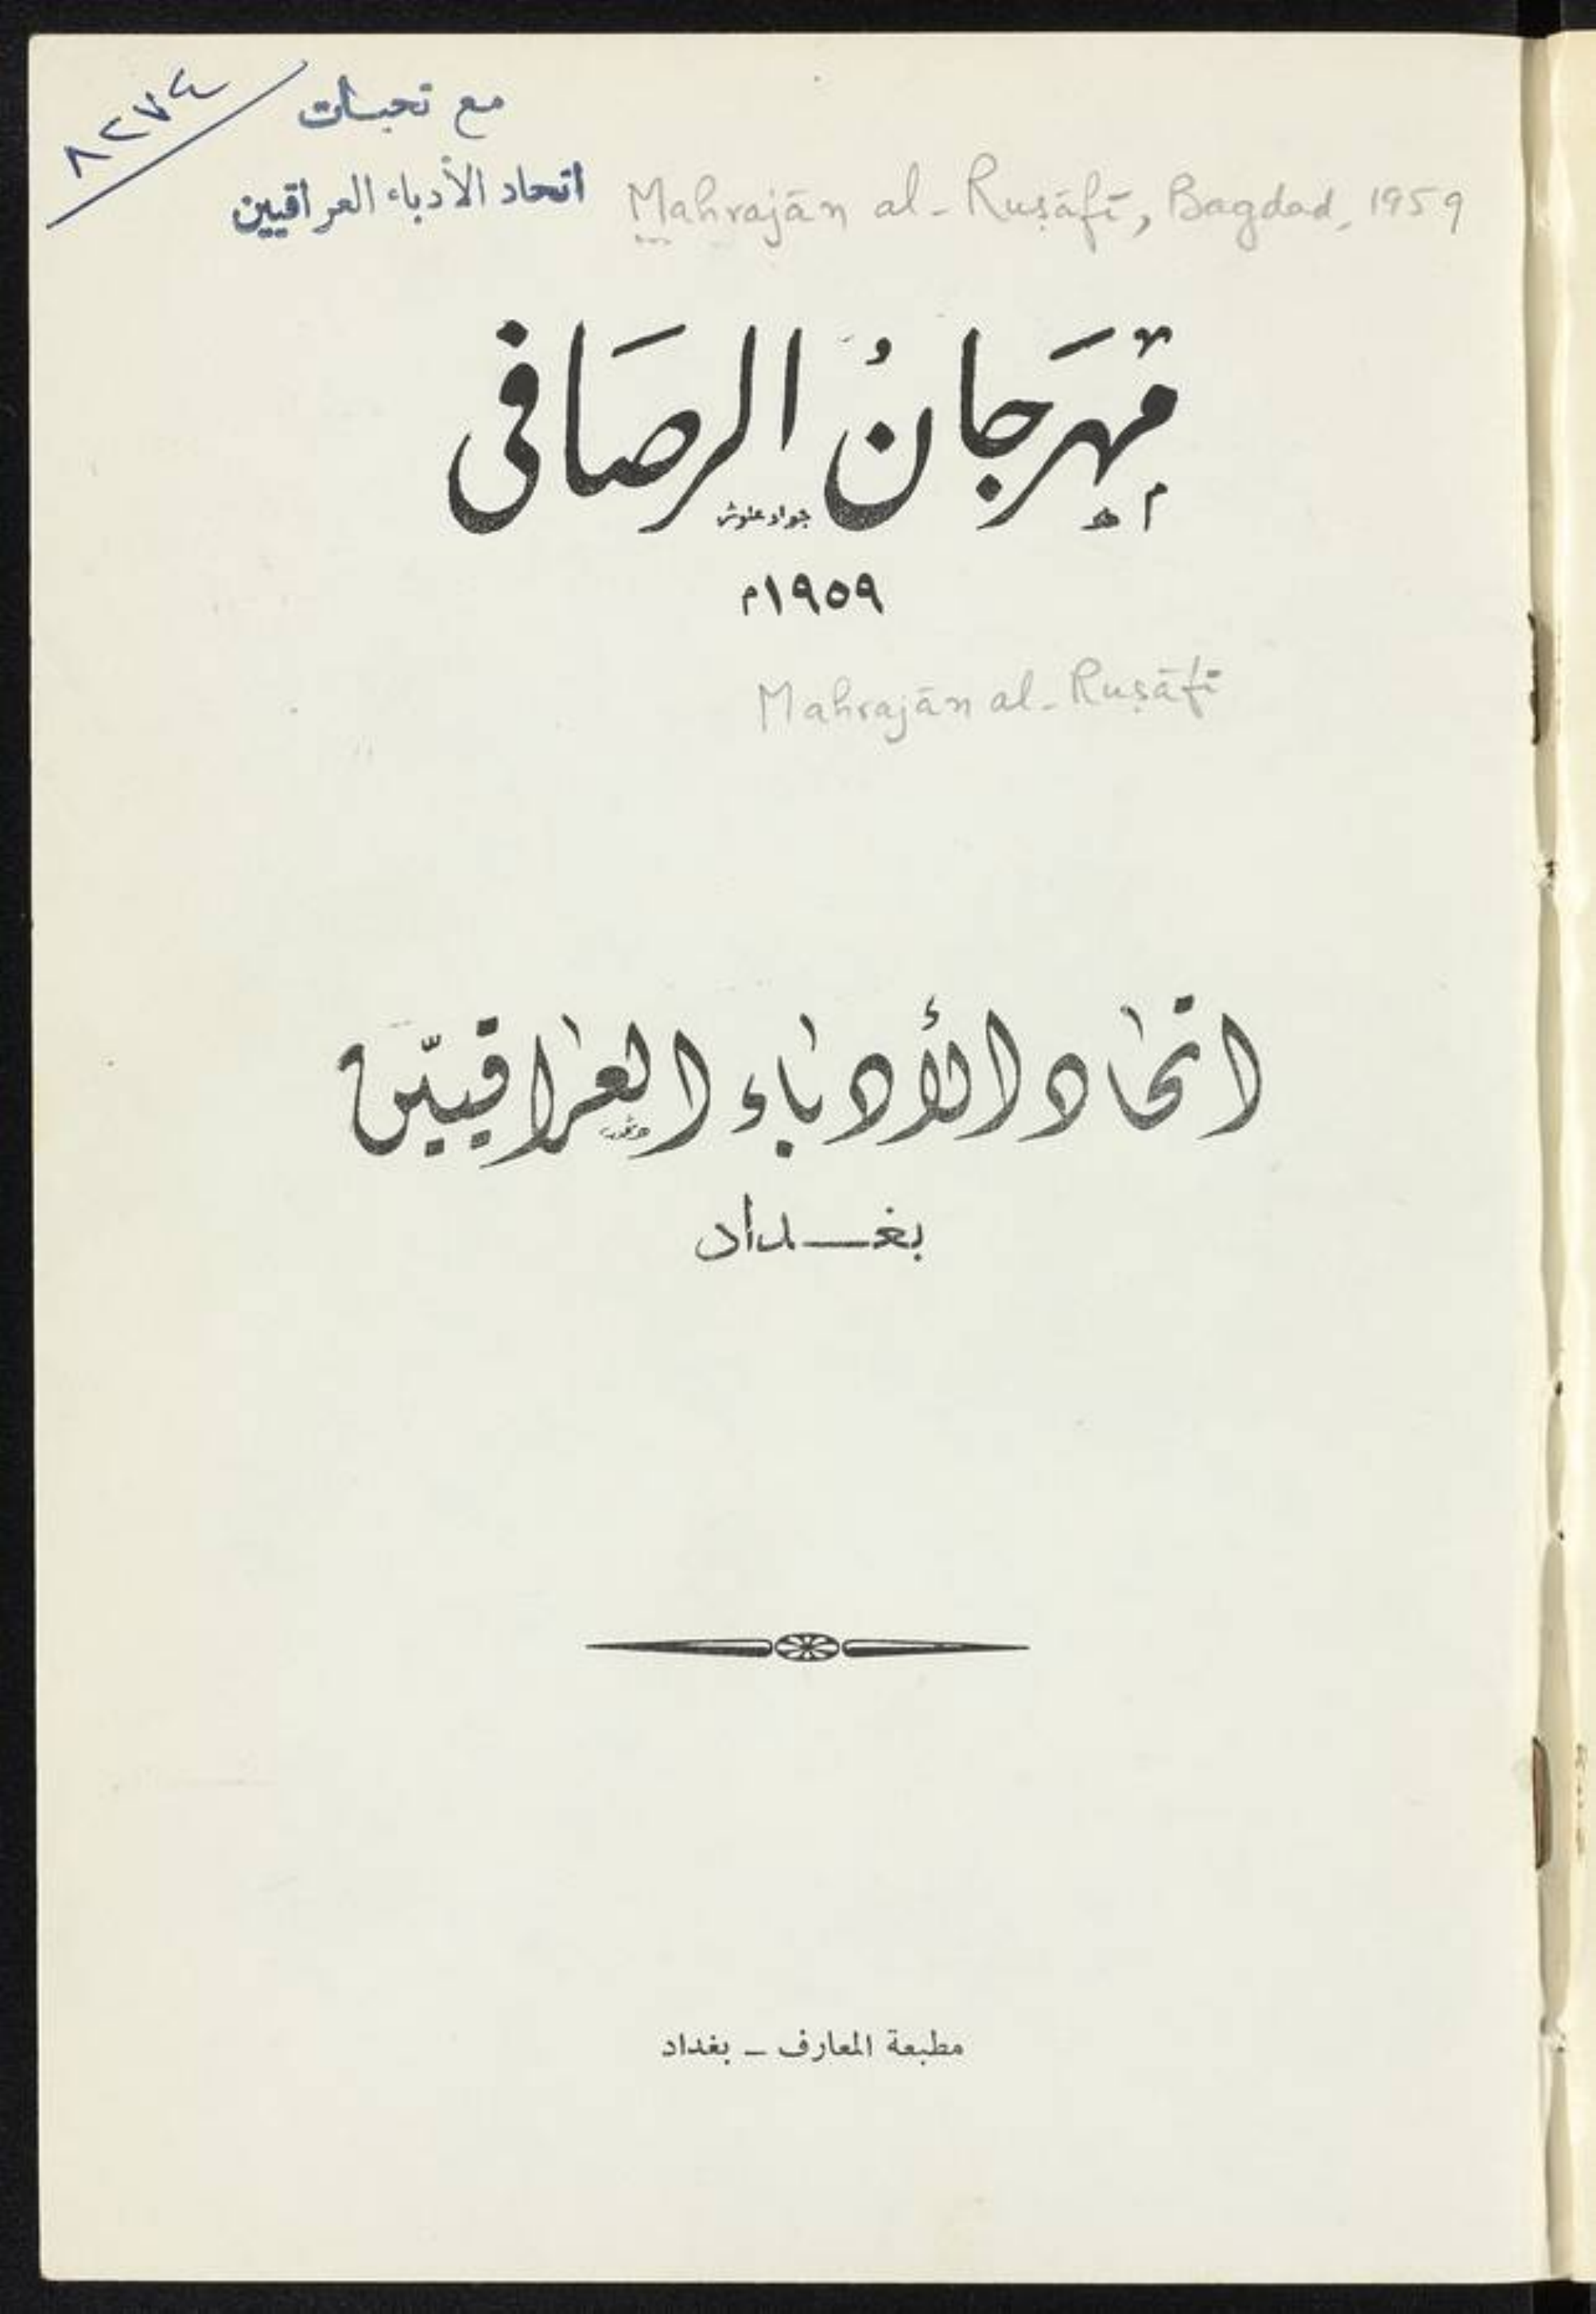 ٨٢٧٤
مع تحيات
اتحاد الأدباء العراقيين
Mahrajān al-Ruṣāfī, Bagdad, 1959
مَهرَجانُ الرصَافي
جواد علوش
١٩٥٩م
Mahrajān al-Ruṣāfī
اتحاد الأدباء العراقيّين
بغـــداد
مطبعة المعارف ــ بغداد